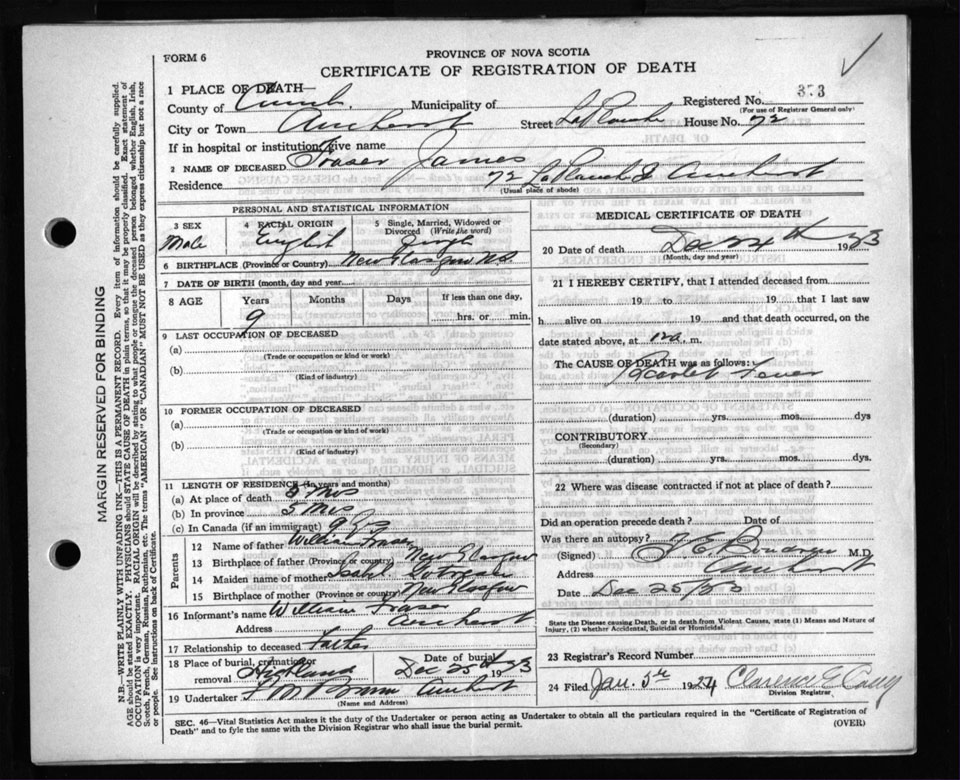 FORM 6
PROVINCE OF NOVA SCOTIA
CERTIFICATE OF REGISTRATION OF DEATH
1 PLACE OF DEATH—
County of Cumb. Municipality of Registered No. 353
(For use of Registrar General only)
City or Town Amherst Street LaPlanche House No. 72
If in hospital or institution, give name
2 NAME OF DECEASED Fraser James
Residence 72 LaPlanche St Amherst
(Usual place of abode)
PERSONAL AND STATISTICAL INFORMATION
3 SEX 4 RACIAL ORIGIN 5 Single, Married, Widowed or Divorced (Write the word)
Male English Single
6 BIRTHPLACE (Province or Country) New Glasgow N.S.
7 DATE OF BIRTH (month, day and year)
8 AGE Years Months Days If less than one day,
9 hrs. or min.
9 LAST OCCUPATION OF DECEASED
(a)
(Trade or occupation or kind or work)
(b)
(Kind of industry)
10 FORMER OCCUPATION OF DECEASED
(a)
(Trade or occupation or kind or work)
(b)
(Kind of industry)
11 LENGTH OF RESIDENCE (In years and months)
(a) At place of death 3 Mos
(b) In province 3 Mos
(c) In Canada (if an immigrant) 9
Parents
12 Name of father William Fraser
13 Birthplace of father (Province or country) New Glasgow
14 Maiden name of mother
15 Birthplace of mother (Province or country) New Glasgow
16 Informant's name William Fraser
Address Amherst
17 Relationship to deceased Father
18 Place of burial, cremation or removal Highland Date of burial Dec 25th 1933
19 Undertaker Amherst
(Name and Address)
MEDICAL CERTIFICATE OF DEATH
20 Date of death Dec 24th 1933
(Month, day and year)
21 I HEREBY CERTIFY, that I attended deceased from
19 to 19 that I last saw
h alive on 19 and that death occurred, on the
date stated above, at m.
The CAUSE OF DEATH was as follows:
Scarlet Fever
(duration) yrs. mos. dys
CONTRIBUTORY
(Secondary)
(duration) yrs. mos. dys.
22 Where was disease contracted if not at place of death?
Did an operation precede death? Date of
Was there an autopsy?
(Signed) M.D.
Address Amherst
Date Dec 25/33
State the Disease causing Death, or in death from Violent Causes, state (1) Means and Nature of
Injury, (2) whether Accidental, Suicidal or Homicidal.
23 Registrar's Record Number
24 Filed Jan. 5th 1934 Clarence E Casey
Division Registrar
SEC. 46—Vital Statistics Act makes it the duty of the Undertaker or person acting as Undertaker to obtain all the particulars required in the "Certificate of Registration of
Death" and to fyle the same with the Division Registrar who shall issue the burial permit.
(OVER)
MARGIN RESERVED FOR BINDING
N.B.—WRITE PLAINLY WITH UNFADING INK—THIS IS A PERMANENT RECORD. Every item of information should be carefully supplied.
AGE should be stated EXACTLY. PHYSICIANS should STATE CAUSE OF DEATH in plain terms, so that it may be properly classified. Exact statement of
OCCUPATION is very important. RACIAL ORIGIN will be described by stating to what people or tongue the deceased person belonged whether English, Irish,
Scotch, French, German, Russian, Ruthenian, etc. The terms "AMERICAN" OR "CANADIAN" MUST NOT BE USED as they express citizenship but not a race
or people. See instructions on back of Certificate.